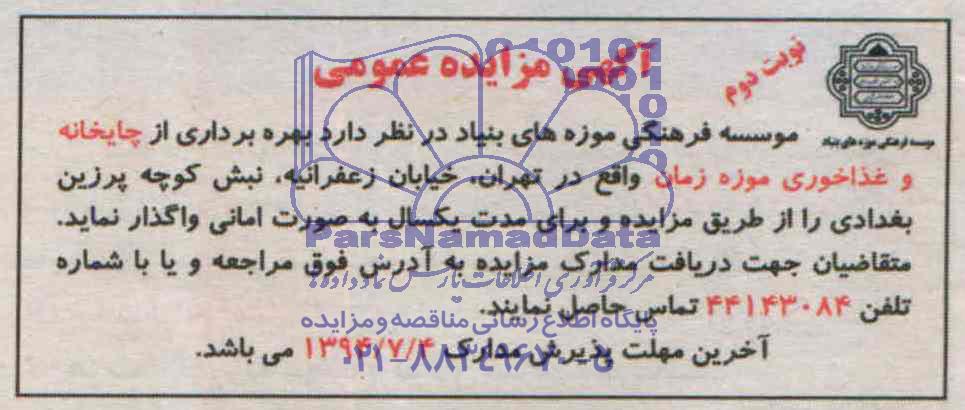 آگهی مزایده عمومی
نوبت دوم
موسسه فرهنگی موزه های بنیاد
موسسه فرهنگی موزه های بنیاد در نظر دارد بهره برداری از چایخانه
و غذاخوری موزه زمان واقع در تهران، خیابان زعفرانیه، نبش کوچه پرزین
بغدادی را از طریق مزایده و برای مدت یکسال به صورت امانی واگذار نماید.
متقاضیان جهت دریافت مدارک مزایده به آدرس فوق مراجعه و یا با شماره
تلفن ۴۴۱۴۳۰۸۴ تماس حاصل نمایند.
آخرین مهلت پذیرش مدارک ۱۳۹۴/۷/۴ می باشد.
ParsNamadData
مرکز فرآوری اطلاعات پارس نماد داده ها
پایگاه اطلاع رسانی مناقصه و مزایده